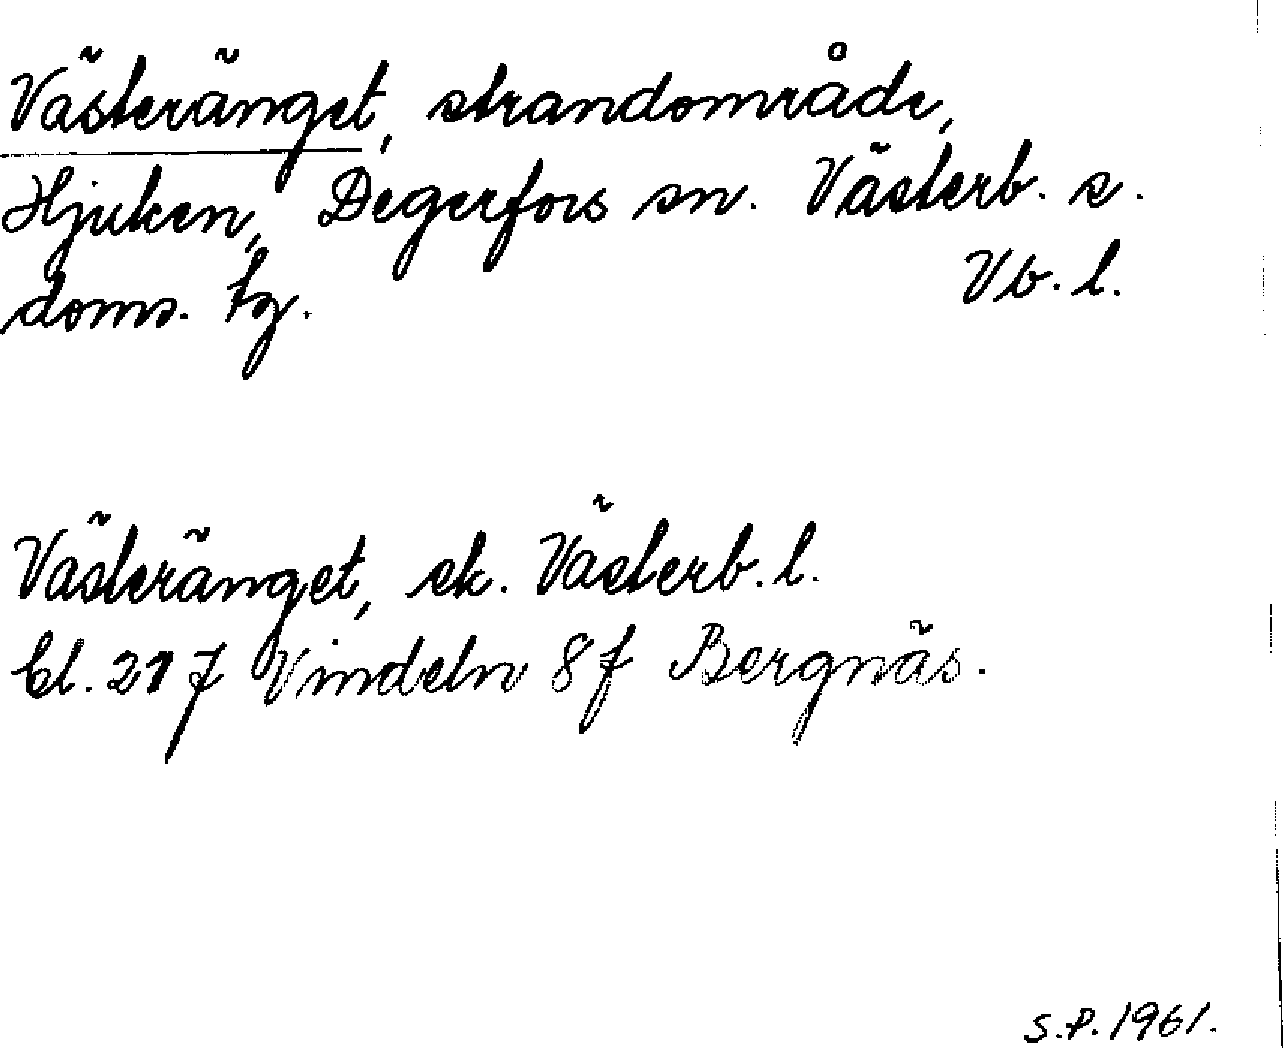 Västeränget, strandområde,
Hjuken, Degerfors sn. Västerb. s.
doms. tg. Vb. l.
Västeränget, ek. Västerb. l.
bl. 217 Vindeln 8f Bergnäs.
S.P. 1961.